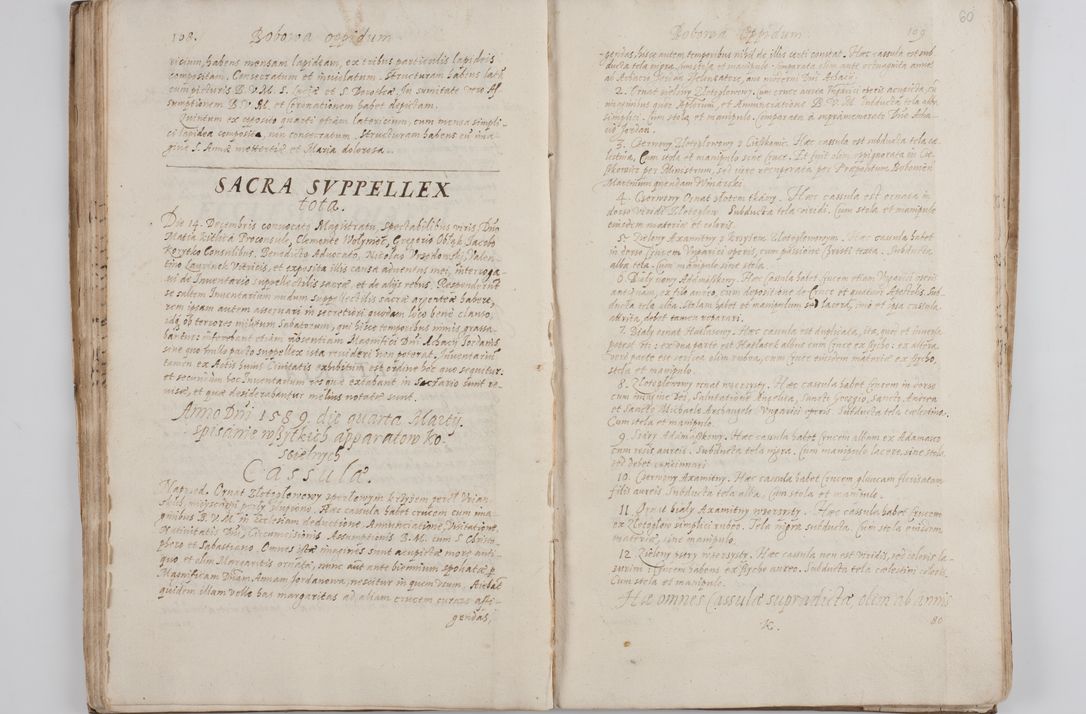 108. Bobowa oppidum
ricium, habens mensam lapideam, ex tribus particulis lapideis
compositam, Consecratum et inviolatum. Structuram habens lat
cum picturis B.V.M. S. Luciæ et S. Dorotheæ. In sumitate vero As
sumptionem B.V.M. et Coronationem habet depictam.
Quintum ex opposito quarti etiam latericium, cum mensa simpli
ci lapidea composita, non consecratum, structuram habens cu ima
gine S. Annæ mettertiæ et Maria dolorosa.
SACRA SVPPELLEX
tota.
Die 14. Decembris convocato Magistratu, spectabilibus viris, Dno
Matia Proconsule, Clemente Gregorio Jacobo
Consulibus, Benedicto Advocato, Nicolao Valen
tino et exposita illis causa adventus mei, interroga
vi de Inventario suppellectilis sacræ, et de alijs rebus. Responderunt
se saltem Inventarium nudum suppellectilis sacræ argenteæ habere,
rem ipsam autem asservari in secretiori quodam loco bene clauso,
idq ob terrores militum Sabatorum, qui hisce temporibus nimis grassa
bantur: inferebant etiam absentiam Magnifici Dni Achacij Jordanis
sine quo nullo pacto suppellex ista revideri non poterat. Inventariu
tamen ex Actis huius Civitatis exhibitum est ordine hoc quo sequitur.
et secundum hoc Inventarium res quæ extabant in Sacrario sunt re
visæ, et quæ desiderabantur melius notatæ sunt.
Anno Dni 1589. die quarta Martij
spisanie wssytkich apparatow ko
scielnych
Cassulæ.
Naprzod. Ornat Zlotoglowowy z perlowym krzyżem
Hæc cassula habet crucem cum ima
ginibus B.V.M. in Ecclesiam deductione, Annunciatione, Visitatione,
Nativitatis Dni, Circumcisionis Assumptionis B.M. cum S. Christo
phero et Sabastiano. Omnes istæ imagines sunt acupictæ more anti
quo et olim Margaritis ornatæ, nunc aut ante biennium spoliatæ p
Magnificam Dnam Annam Jordanowa, nescitur in quem usum, Aiebat
quidem illam velle has margaritas ad aliam crucem curare affi
gendas,
60
Bobowa Oppidum 109
gendas, hisce autem temporibus nihil de illis certi constat. Hæc cassula est sub
ducta tela nigra, cum stola et manipulo. Comparata olim ante octuaginta annos
ab Achacio Jordan avo moderni Dni Achacij.
2. Ornat zielony Zlotoglowowy, cum cruce auria Vngarici operis acupicta, cu
imaginibus quor Aplorum, et Annunciationis B.V.M. Subducta tela alba
simplici. Cum stola et manipulo. Comparata à supramemorato Dno Acha
cio Jordan.
3. Czerwony Zlotoglowowy z Hæc cassula est subducta tela cæ
lestina, Cum stola et manipulo sine cruce. Et fuit olim oppignorata in Cie
skowice per Ministrum, sed vere recuperata per Præpositum Bobovien
Martinum quendam Winarski.
4. Czerwony Ornat zlotem tkany. Hæc cassula est ornata in
dorso viridi Zlotoglow. Subducta tela viridi. Cum stola et manipulo
eiusdem materiæ et coloris.
5. Zielony Axamitny z krzyżem Zlotoglowowym. Hæc cassula habet
in dorso Crucem Vngarici operis, cum passione Christi texta. Subducta
alba tela. Cum manipulo sine stola.
6. Bialy nowy Adamaskowy. Hæc Cassula habet crucem etiam Vngarici operis
antiquam, ex filo aureo, cum depositione de Cruce et quatuor Apostolis. Sub
ducta tela alba. Stolam habet et manipulum sed lacera, imo et ipsa casula
attrita, debet tamen reparari.
7. Bialy ornat Hatlasowy. Hæc cassula est duplicata, ita, quod et inversa
potest etc: ex una parte est Hatlasek albus cum cruce ex Bycho. ex altera
vero parte est sericea olim rubea, cum cruce eiusdem materiæ ex Bycho,
stola et manipulo.
8. Zlotoglowy ornat wzorzysty. Hæc cassula habet Crucem in dorso
cum imagine Dei, Salutatione Angelica, Sancto Georgio, Sancto Andrea
et Sancto Michaele Archangelo. Vngarici operis. Subducta tela cælestina.
Cum stola et manipulo.
9. Szary Adamaskowy. Hæc cassula habet Crucem albam ex Adamasco
cum rosis aureis. Subducta tela nigra. Cum manipulo lacero, sine stola
sed debet concinnari
10. Czerwony Axamitny. Hæc cassula habet Crucem glaucam floritatam
filis aureis Subducta tela alba, Cum stola et manipulo.
11. Ornat bialy Axamitny wzorzysty. Hæc cassula habet Crucem
ex Zlotoglow simplici rubeo. Tela nigra subducta. Cum stola eiusdem
materiæ, sine manipulo.
12. Zielony wzorzysty. Hæc cassula non est viridis, sed coloris la
surini Crucem habens ex Bycho aureo. Subducta tela cælestini coloris.
Cum stola et manipulo.
Hæ omnes Cassulæ supradictæ, olim ab annis
K. 80